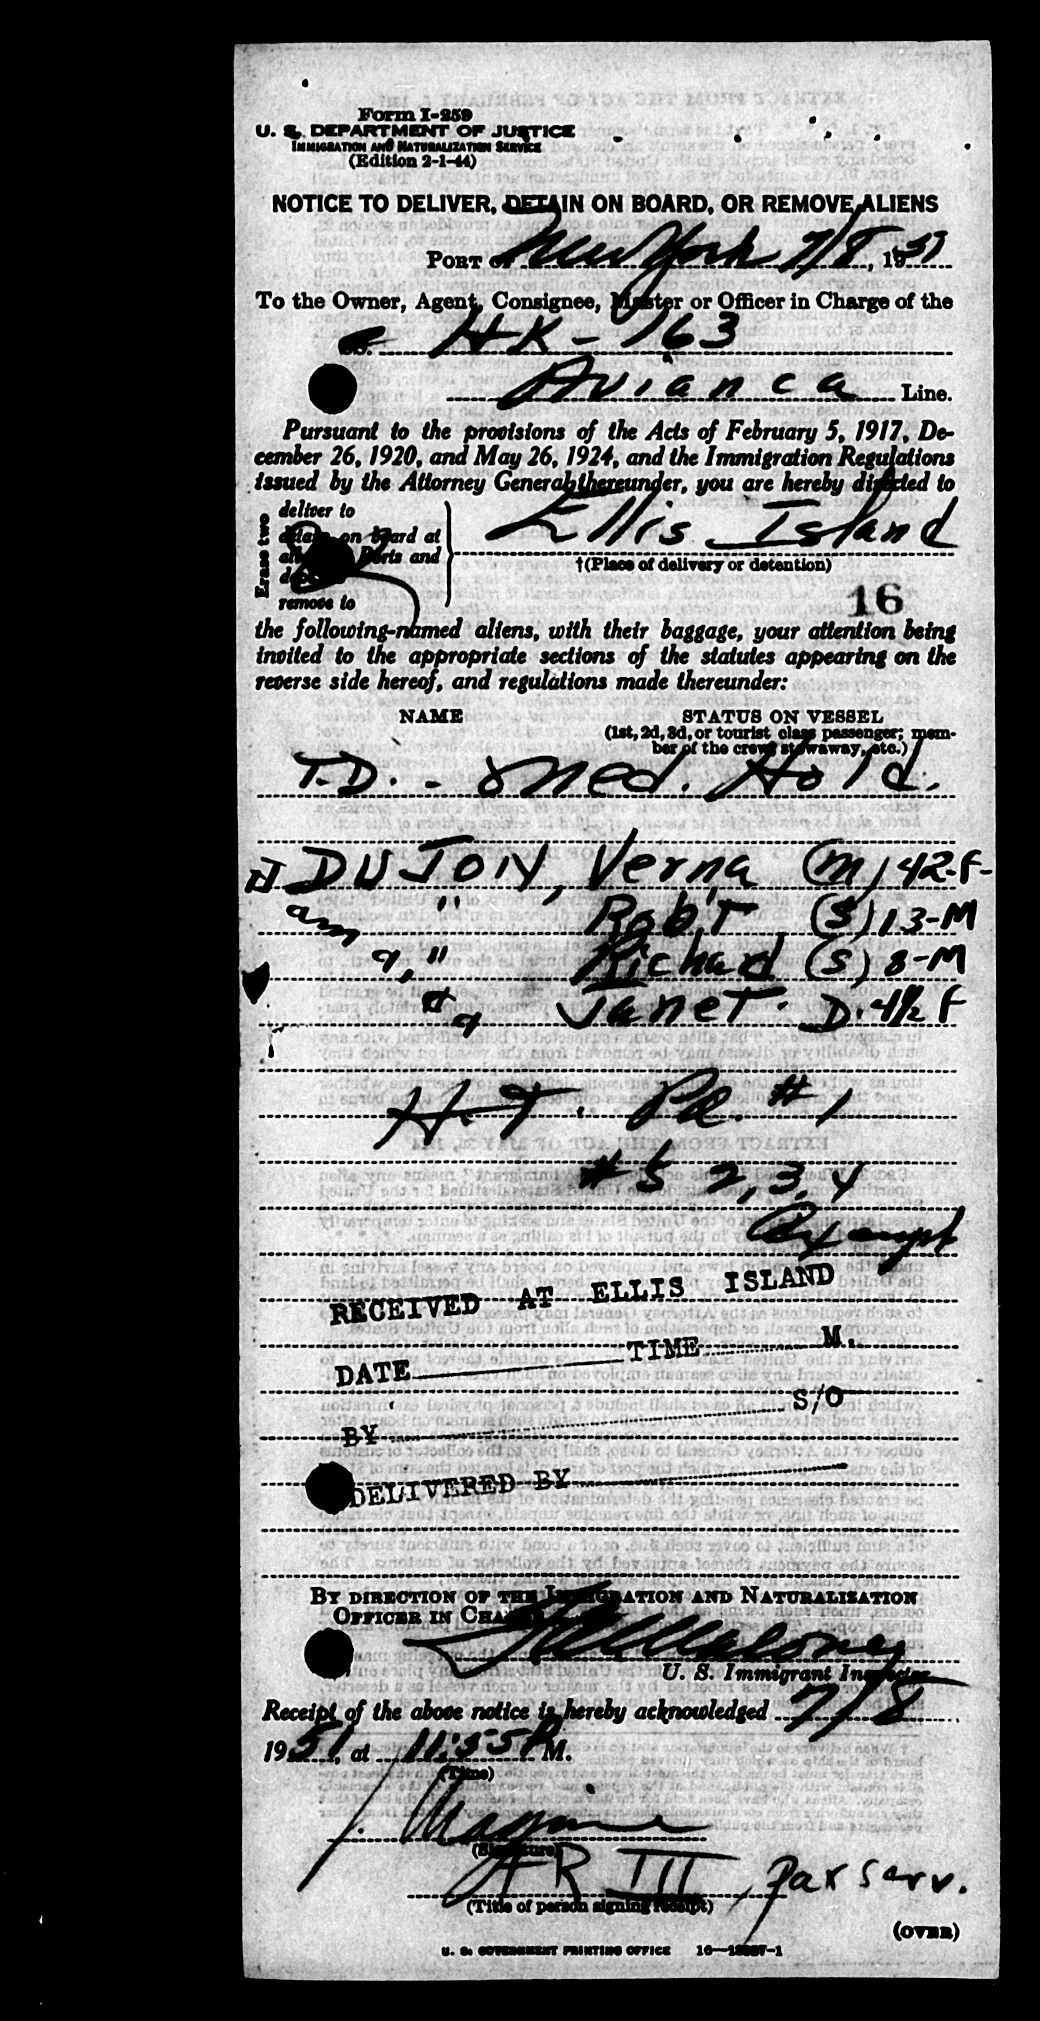 Form I-259
U. S. DEPARTMENT OF JUSTICE
IMMIGRATION AND NATURALIZATION SERVICE
(Edition 2-1-44)
NOTICE TO DELIVER, DETAIN ON BOARD, OR REMOVE ALIENS
PORT OF New York 7/8, 1951
To the Owner, Agent, Consignee, Master or Officer in Charge of the
HK - 163
Avianca Line.
Pursuant to the provisions of the Acts of February 5, 1917, De-
cember 26, 1920, and May 26, 1924, and the Immigration Regulations
issued by the Attorney General thereunder, you are hereby directed to
Erase two
deliver to
detain on board at
Ports and
remove to
Ellis Island
†(Place of delivery or detention)
16
the following-named aliens, with their baggage, your attention being
invited to the appropriate sections of the statutes appearing on the
reverse side hereof, and regulations made thereunder:
NAME STATUS ON VESSEL
(1st, 2d, 3d, or tourist class passenger; mem-
ber of the crew, stowaway, etc.)
T.D. - Med. Hold.
DUJOIY, Verna (M) 42-F-
" Rob't (S) 13-M
" Richard (S) 8-M
Janet. D. 4½ F
H.T. Pd. # 1
# 5 2, 3, 4
Exempt
RECEIVED AT ELLIS ISLAND
DATE TIME M.
BY S/O
DELIVERED BY
BY DIRECTION OF THE IMMIGRATION AND NATURALIZATION
OFFICER IN CHARGE
Maloney
U. S. Immigrant Inspector
Receipt of the above notice is hereby acknowledged 7/8
1951, at 11:55 P M.
(Time)
(Signature)
AR III Pax Serv.
(Title of person signing receipt)
(OVER)
U. S. GOVERNMENT PRINTING OFFICE